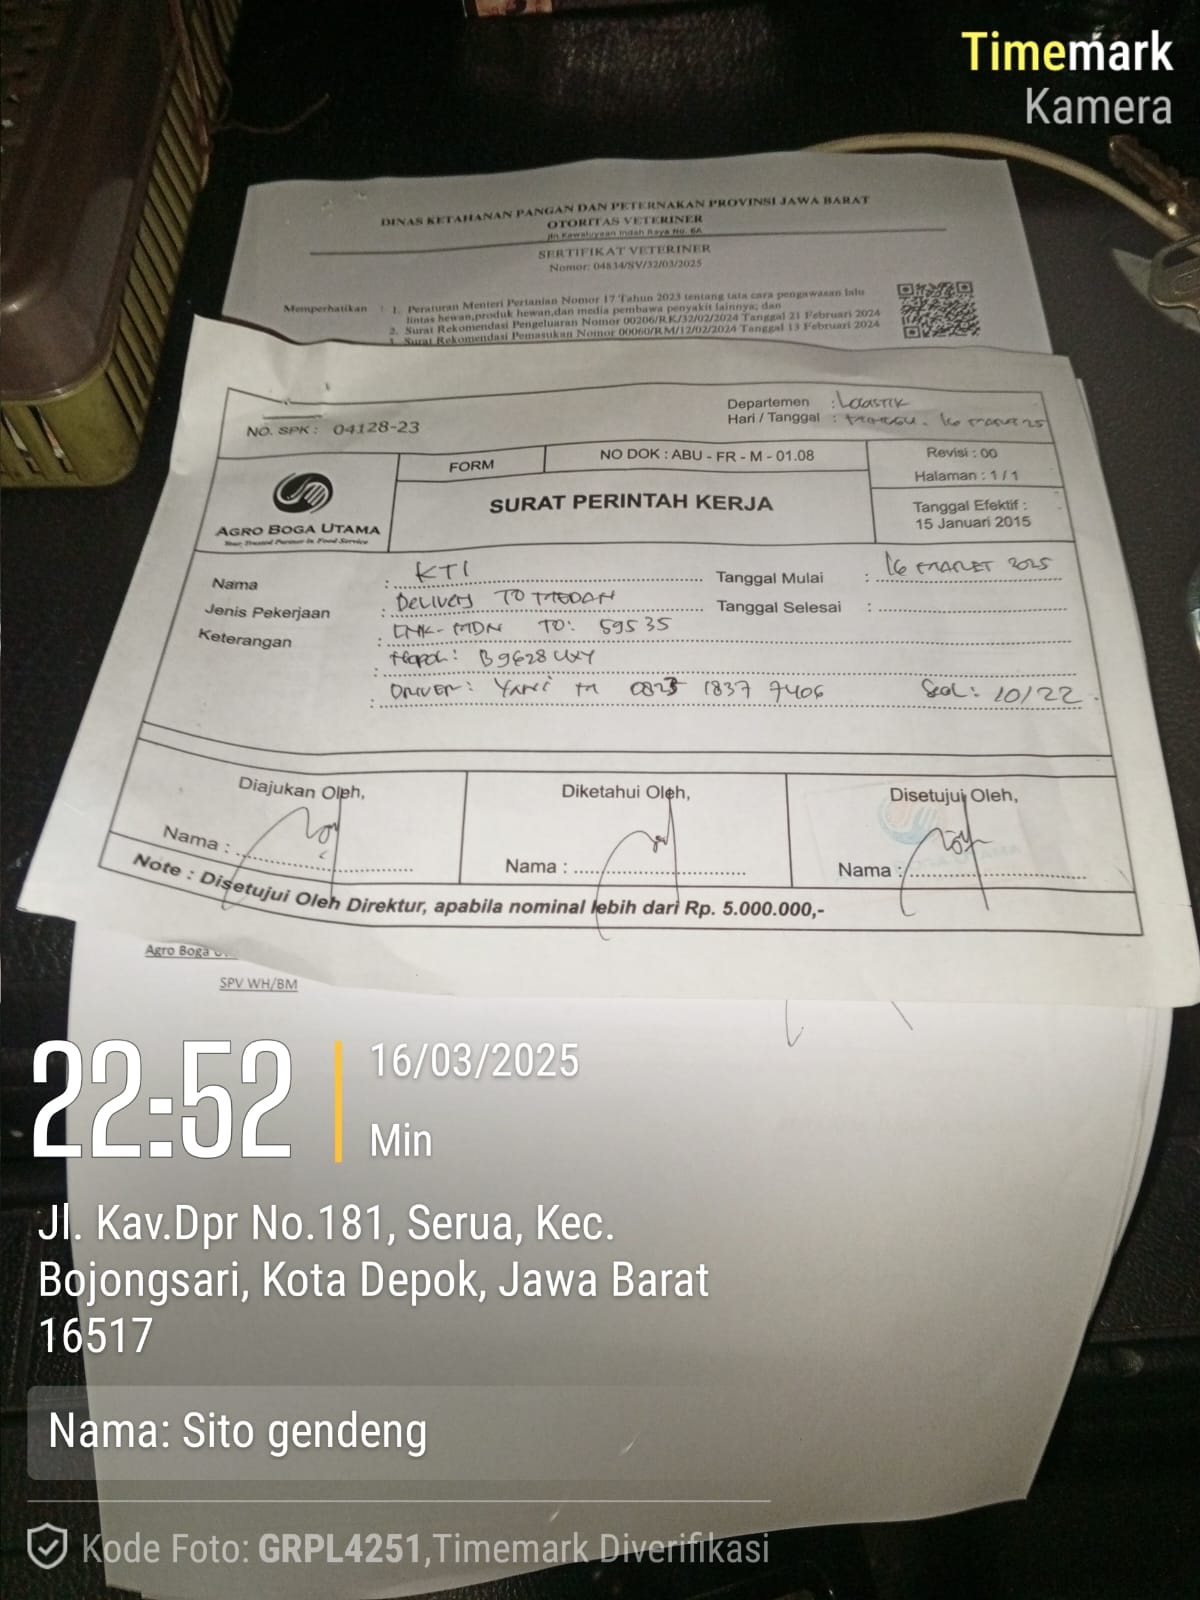 Timemark
Kamera
DINAS KETAHANAN PANGAN DAN PETERNAKAN PROVINSI JAWA BARAT
OTORITAS VETERINER
Jln Kawaluyaan Indah Raya No. 6A
SERTIFIKAT VETERINER
Nomor: 04834/SV/32/03/2025
Memperhatikan : 1. Peraturan Menteri Pertanian Nomor 17 Tahun 2023 tentang tata cara pengawasan lalu
lintas hewan,produk hewan,dan media pembawa penyakit lainnya; dan
2. Surat Rekomendasi Pengeluaran Nomor 00206/RK/32/02/2024 Tanggal 21 Februari 2024
3. Surat Rekomendasi Pemasukan Nomor 00060/RM/12/02/2024 Tanggal 13 Februari 2024
NO. SPK : 04128-23
Departemen :
Hari / Tanggal : 16 MARET 25
AGRO BOGA UTAMA
Your Trusted Partner in Food Service
FORM
NO DOK : ABU - FR - M - 01.08
SURAT PERINTAH KERJA
Revisi : 00
Halaman : 1 / 1
Tanggal Efektif :
15 Januari 2015
Nama : KTI
Tanggal Mulai : 16 MARET 2025
Jenis Pekerjaan : DELIVERY TO MEDAN
Tanggal Selesai :
Keterangan : MDN TO: 59535
: Nopol: B 9628 UXY
: DRIVER: YANI M 0823 1837 7406 Seal: 10/22
Diajukan Oleh,
Nama :
Diketahui Oleh,
Nama :
Disetujui Oleh,
Nama :
Note : Disetujui Oleh Direktur, apabila nominal lebih dari Rp. 5.000.000,-
Agro Boga
SPV WH/BM
22:52
16/03/2025
Min
Jl. Kav.Dpr No.181, Serua, Kec.
Bojongsari, Kota Depok, Jawa Barat
16517
Nama: Sito gendeng
Kode Foto: GRPL4251,Timemark Diverifikasi